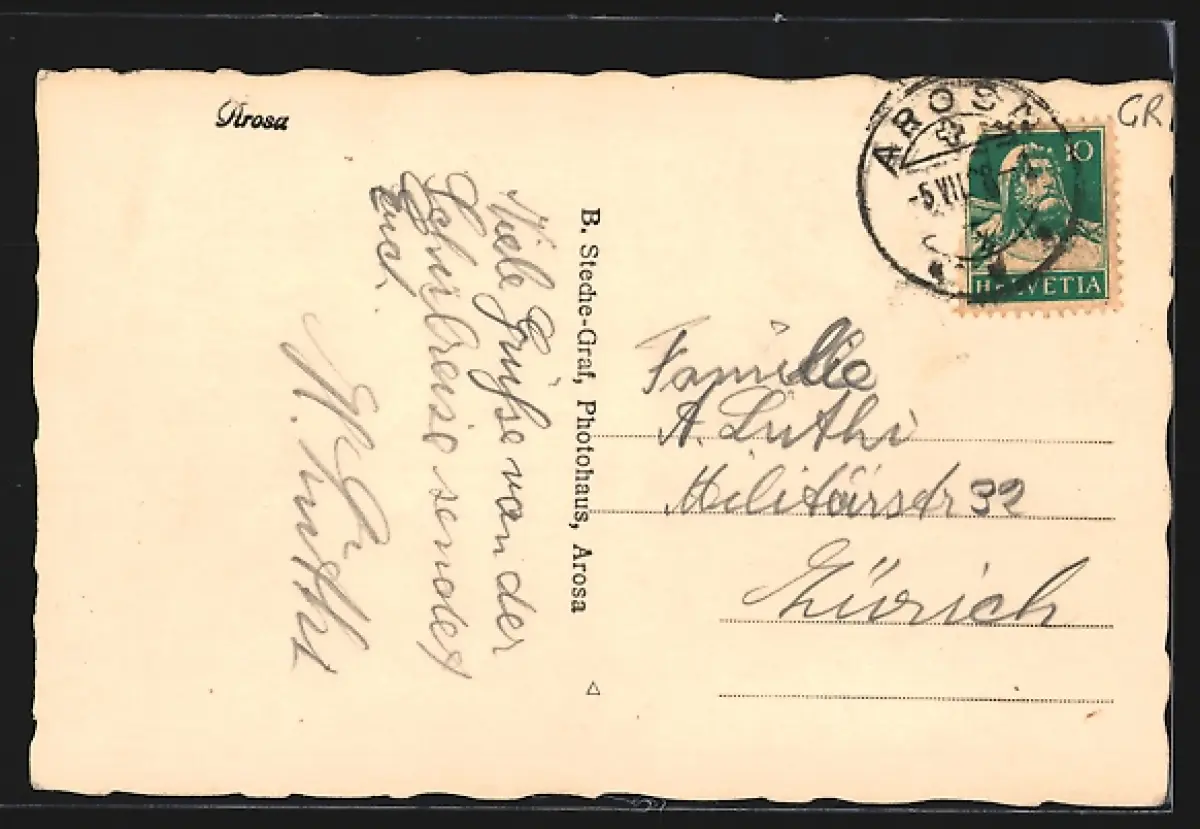 Arosa
Viele Grüsse von der
Schulreise sendet
Euch
B. Steche-Graf, Photohaus, Arosa
AROSA
-5.VII.
10
HELVETIA
GR
Familie
A. Lüthi
Militärstr 32
Zürich